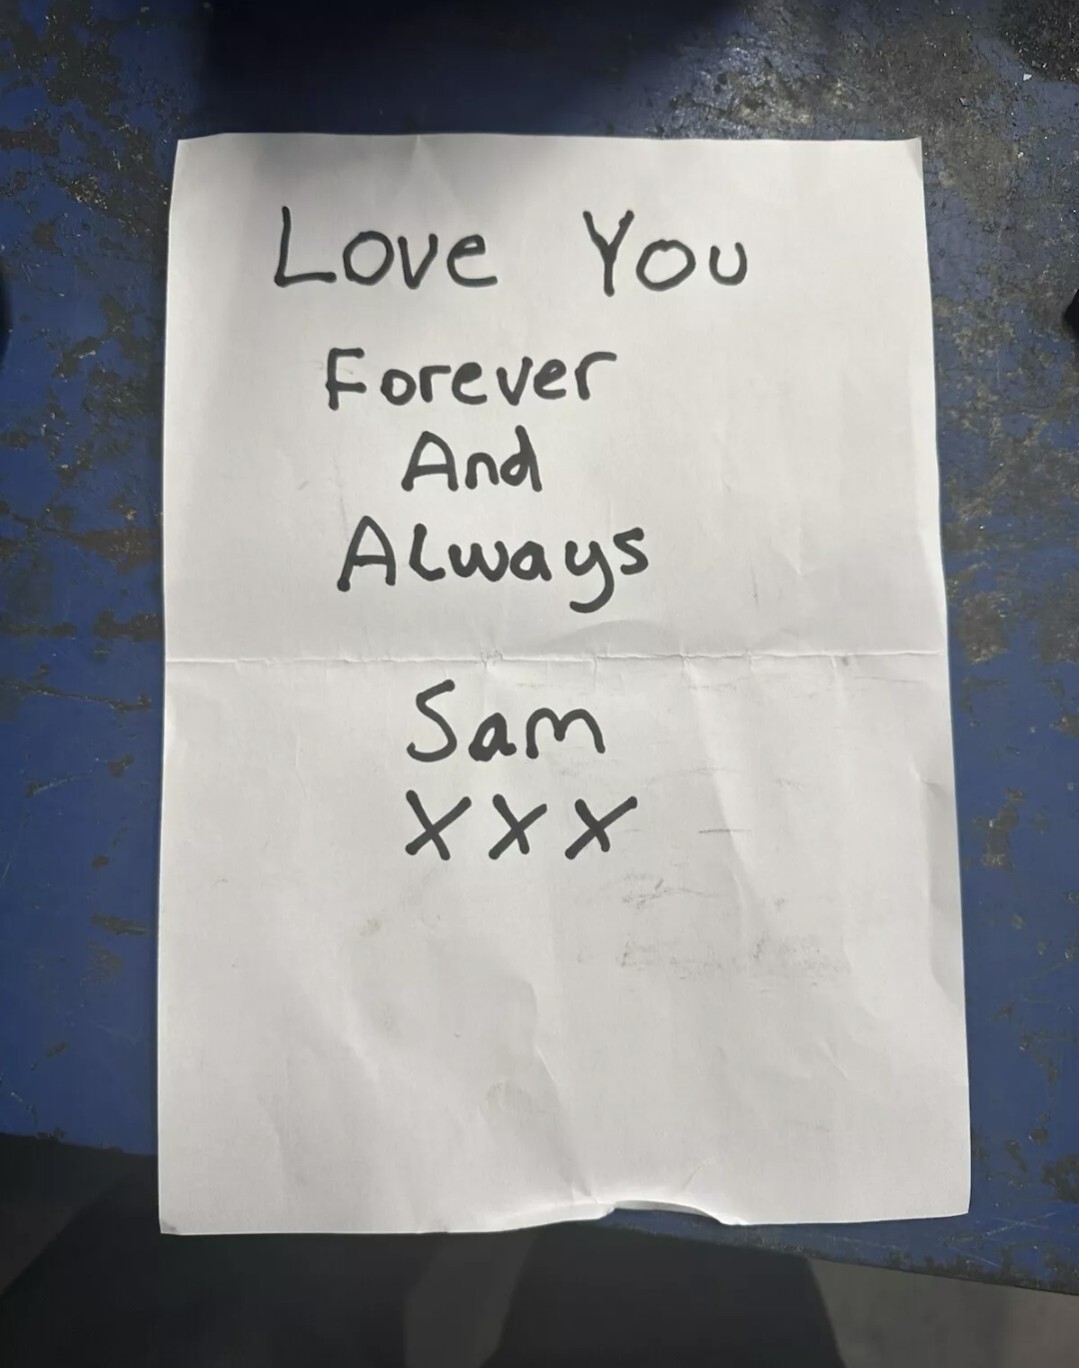 Love You
Forever
And
Always
Sam
xxx